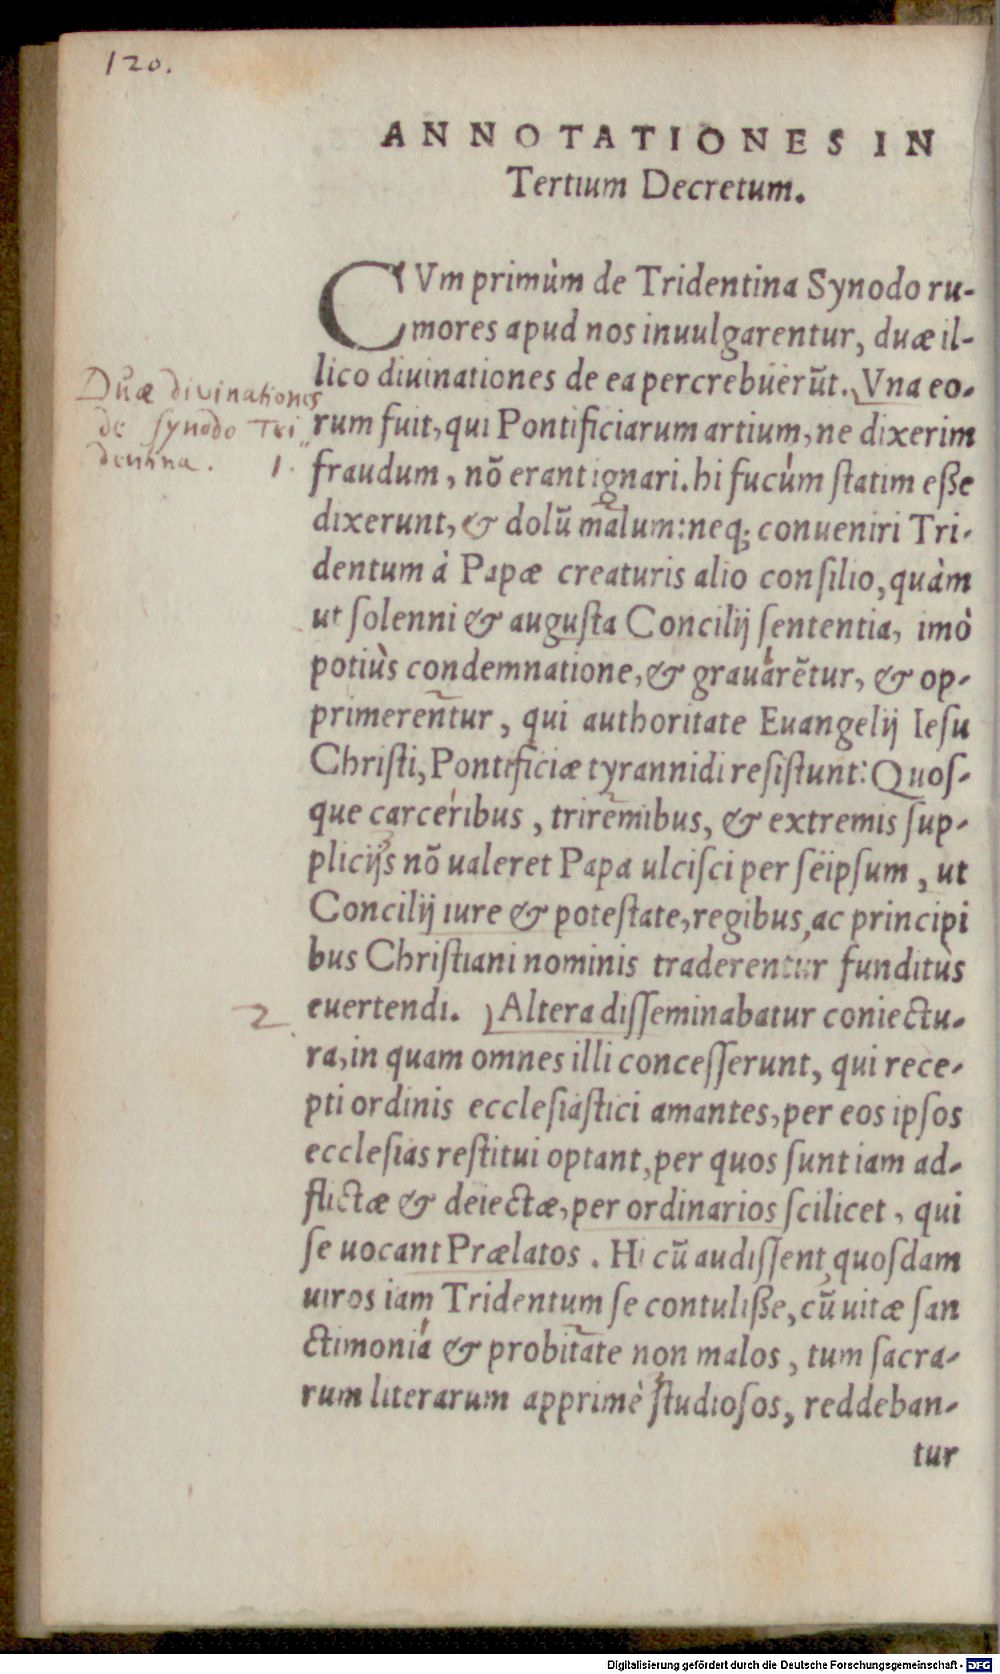 120.
ANNOTATIONES IN
Tertium Decretum.
CVm primùm de Tridentina Synodo ru-
mores apud nos inuulgarentur, duæ il-
lico diuinationes de ea percrebüerūt. Vna eo-
rum fuit, qui Pontificiarum artium, ne dixerim
fraudum, nō erant ignari. hi fucum ſtatim eſſe
dixerunt, & dolū malum: neq; conueniri Tri-
dentum à Papæ creaturis alio conſilio, quàm
ut ſolenni & auguſta Concilij ſententia, imò
potiùs condemnatione, & grauarētur, & op-
primerentur, qui authoritate Euangelij Ieſu
Chriſti, Pontificiæ tyrannidi reſiſtunt: Quoſ-
que carceribus, triremibus, & extremis ſup-
plicijs nō ualeret Papa ulciſci per ſeipſum, ut
Concilij iure & poteſtate, regibus, ac principi
bus Chriſtiani nominis traderentur funditùs
euertendi. Altera diſſeminabatur coniectu-
ra, in quam omnes illi conceſſerunt, qui rece-
pti ordinis eccleſiaſtici amantes, per eos ipſos
eccleſias reſtitui optant, per quos ſunt iam ad-
flictæ & deiectæ, per ordinarios ſcilicet, qui
ſe uocant Prælatos. Hi cū audiſſent quoſdam
uiros iam Tridentum ſe contuliſſe, cū uitæ ſan
ctimonia & probitate non malos, tum ſacra-
rum literarum apprimè ſtudioſos, reddeban-
tur
Duæ divinationes
de synodo Tri
dentina. 1.
2
Digitalisierung gefördert durch die Deutsche Forschungsgemeinschaft - DFG